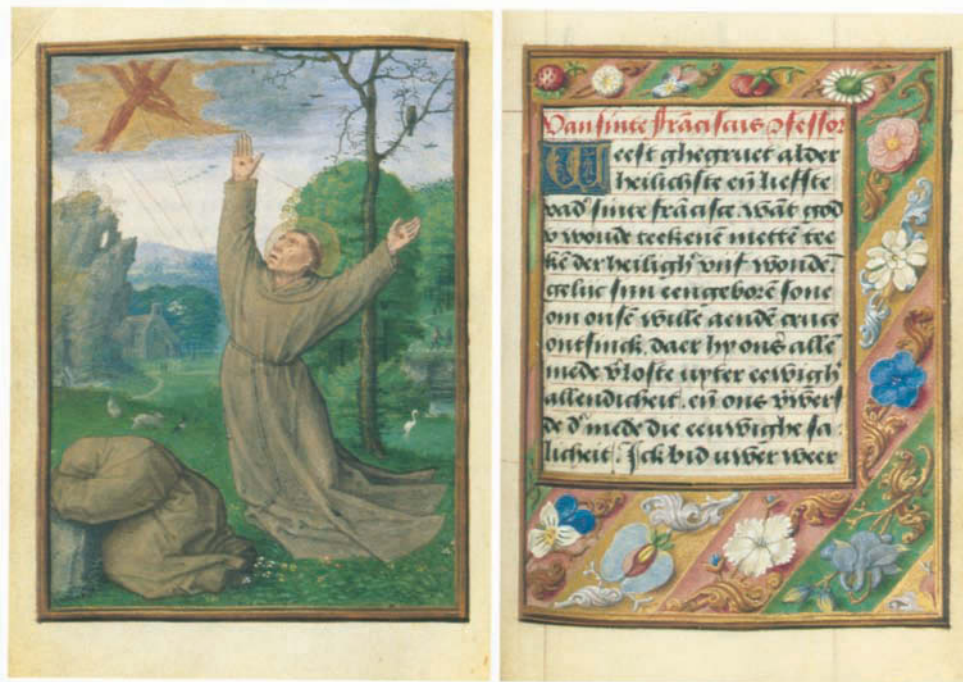 Van sinte frāciscus 9fessor
Weest ghegruet alder
heilichste eñ liefste
vad' sinte frācisce. wāt god
v wonde teekenē mettē tee
kē der heiligh' vijf wondē.
geluc sijn eengeborē sone
om onsē willē aendē cruce
ontfinck. daer hy ons allē
mede v'loste uyter eewigh'
allendicheit. eñ ons v'werf
de d' mede die eeuwighe sa
licheit. Ick bid uwer weer